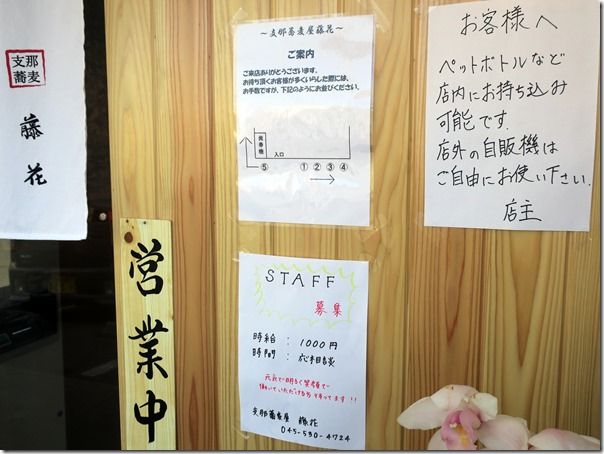 支那
蕎麦
藤花
営業中
～支那蕎麦屋藤花～
ご案内
ご来店ありがとうございます。
お待ち頂くお客様が多くいらした際には、
お手数ですが、下記のようにお並びください。
発券機
入口
⑤ ① ② ③ ④
お客様へ
ペットボトルなど
店内にお持ち込み
可能です。
店外の自販機は
ご自由にお使い下さい。
店主
STAFF
募集
時給 : 1000円
時間 : 応相談
元気で明るく笑顔で
働いていただける方 待ってます!!
支那蕎麦屋 藤花
045-530-4724